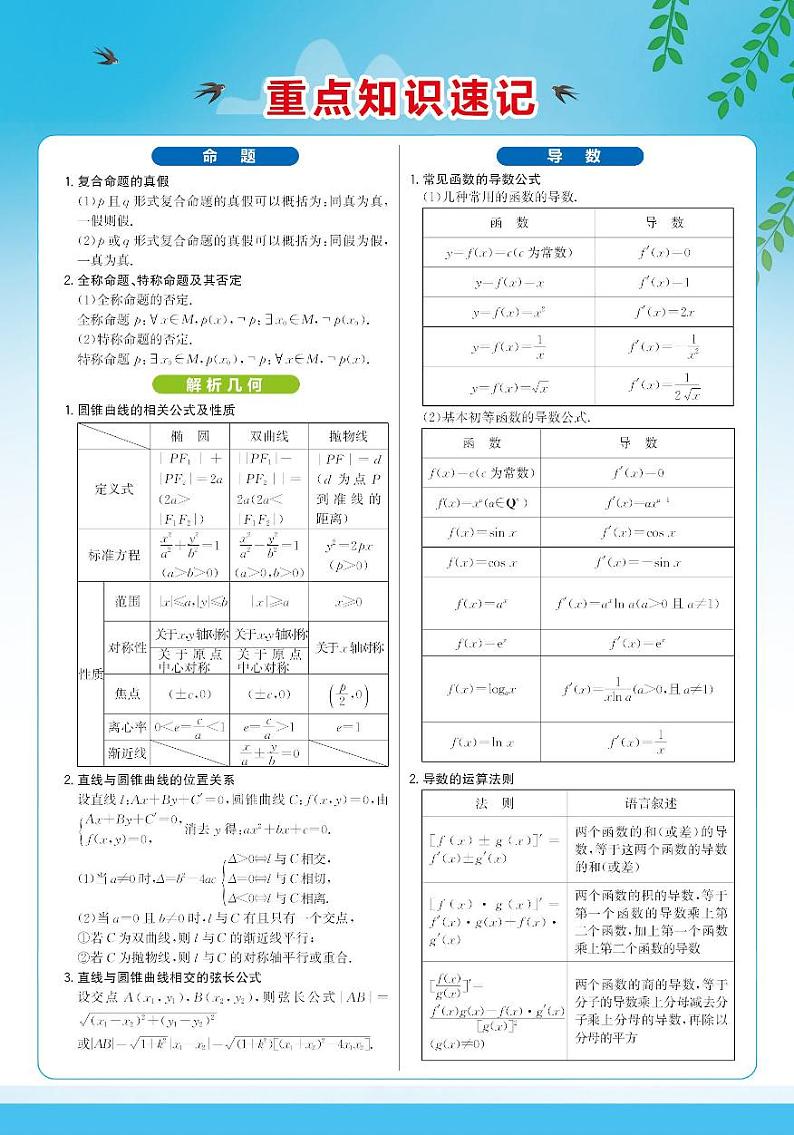 重点知识速记
命 题
1. 复合命题的真假
(1)p且q形式复合命题的真假可以概括为:同真为真,
一假则假.
(2)p或q形式复合命题的真假可以概括为:同假为假,
一真为真.
2. 全称命题、特称命题及其否定
(1)全称命题的否定.
全称命题 p:∀x∈M,p(x),¬p:∃x₀∈M,¬p(x₀).
(2)特称命题的否定.
特称命题 p:∃x₀∈M,p(x₀),¬p:∀x∈M,¬p(x).
解析几何
1. 圆锥曲线的相关公式及性质
椭 圆 双曲线 抛物线
定义式 |PF₁|+|PF₂|=2a(2a>|F₁F₂|) ||PF₁|-|PF₂||=2a(2a<|F₁F₂|) |PF|=d(d为点P到准线的距离)
标准方程 x²/a²+y²/b²=1(a>b>0) x²/a²-y²/b²=1(a>0,b>0) y²=2px(p>0)
性质
范围 |x|≤a,|y|≤b |x|≥a x≥0
对称性 关于x,y轴对称 关于x,y轴对称 关于x轴对称
关于原点中心对称 关于原点中心对称
焦点 (±c,0) (±c,0) (p/2,0)
离心率 0<e=c/a<1 e=c/a>1 e=1
渐近线 x/a±y/b=0
2. 直线与圆锥曲线的位置关系
设直线l:Ax+By+C′=0,圆锥曲线C:f(x,y)=0,由
{Ax+By+C′=0, f(x,y)=0, 消去y得:ax²+bx+c=0.
(1)当a≠0时,Δ=b²-4ac
{Δ>0⇔l与C相交,
Δ=0⇔l与C相切,
Δ<0⇔l与C相离.
(2)当a=0且b≠0时,l与C有且只有一个交点,
①若C为双曲线,则l与C的渐近线平行;
②若C为抛物线,则l与C的对称轴平行或重合.
3. 直线与圆锥曲线相交的弦长公式
设交点 A(x₁,y₁),B(x₂,y₂),则弦长公式|AB|=
√((x₁-x₂)²+(y₁-y₂)²)
或|AB|=√(1+k²)|x₁-x₂|=√((1+k²)[(x₁+x₂)²-4x₁x₂]).
导 数
1. 常见函数的导数公式
(1)几种常用的函数的导数.
函 数 导 数
y=f(x)=c(c为常数) f′(x)=0
y=f(x)=x f′(x)=1
y=f(x)=x² f′(x)=2x
y=f(x)=1/x f′(x)=-1/x²
y=f(x)=√x f′(x)=1/(2√x)
(2)基本初等函数的导数公式.
函 数 导 数
f(x)=c(c为常数) f′(x)=0
f(x)=xᵅ(α∈Q*) f′(x)=αxᵅ⁻¹
f(x)=sin x f′(x)=cos x
f(x)=cos x f′(x)=-sin x
f(x)=aˣ f′(x)=aˣln a(a>0且a≠1)
f(x)=eˣ f′(x)=eˣ
f(x)=logₐx f′(x)=1/(xln a)(a>0,且a≠1)
f(x)=ln x f′(x)=1/x
2. 导数的运算法则
法 则 语言叙述
[f(x)±g(x)]′=
f′(x)±g′(x)
两个函数的和(或差)的导
数,等于这两个函数的导数
的和(或差)
[f(x)·g(x)]′=
f′(x)·g(x)+f(x)·
g′(x)
两个函数的积的导数,等于
第一个函数的导数乘上第
二个函数,加上第一个函数
乘上第二个函数的导数
[f(x)/g(x)]′=
(f′(x)g(x)-f(x)·g′(x))/[g(x)]²
(g(x)≠0)
两个函数的商的导数,等于
分子的导数乘上分母减去分
子乘上分母的导数,再除以
分母的平方